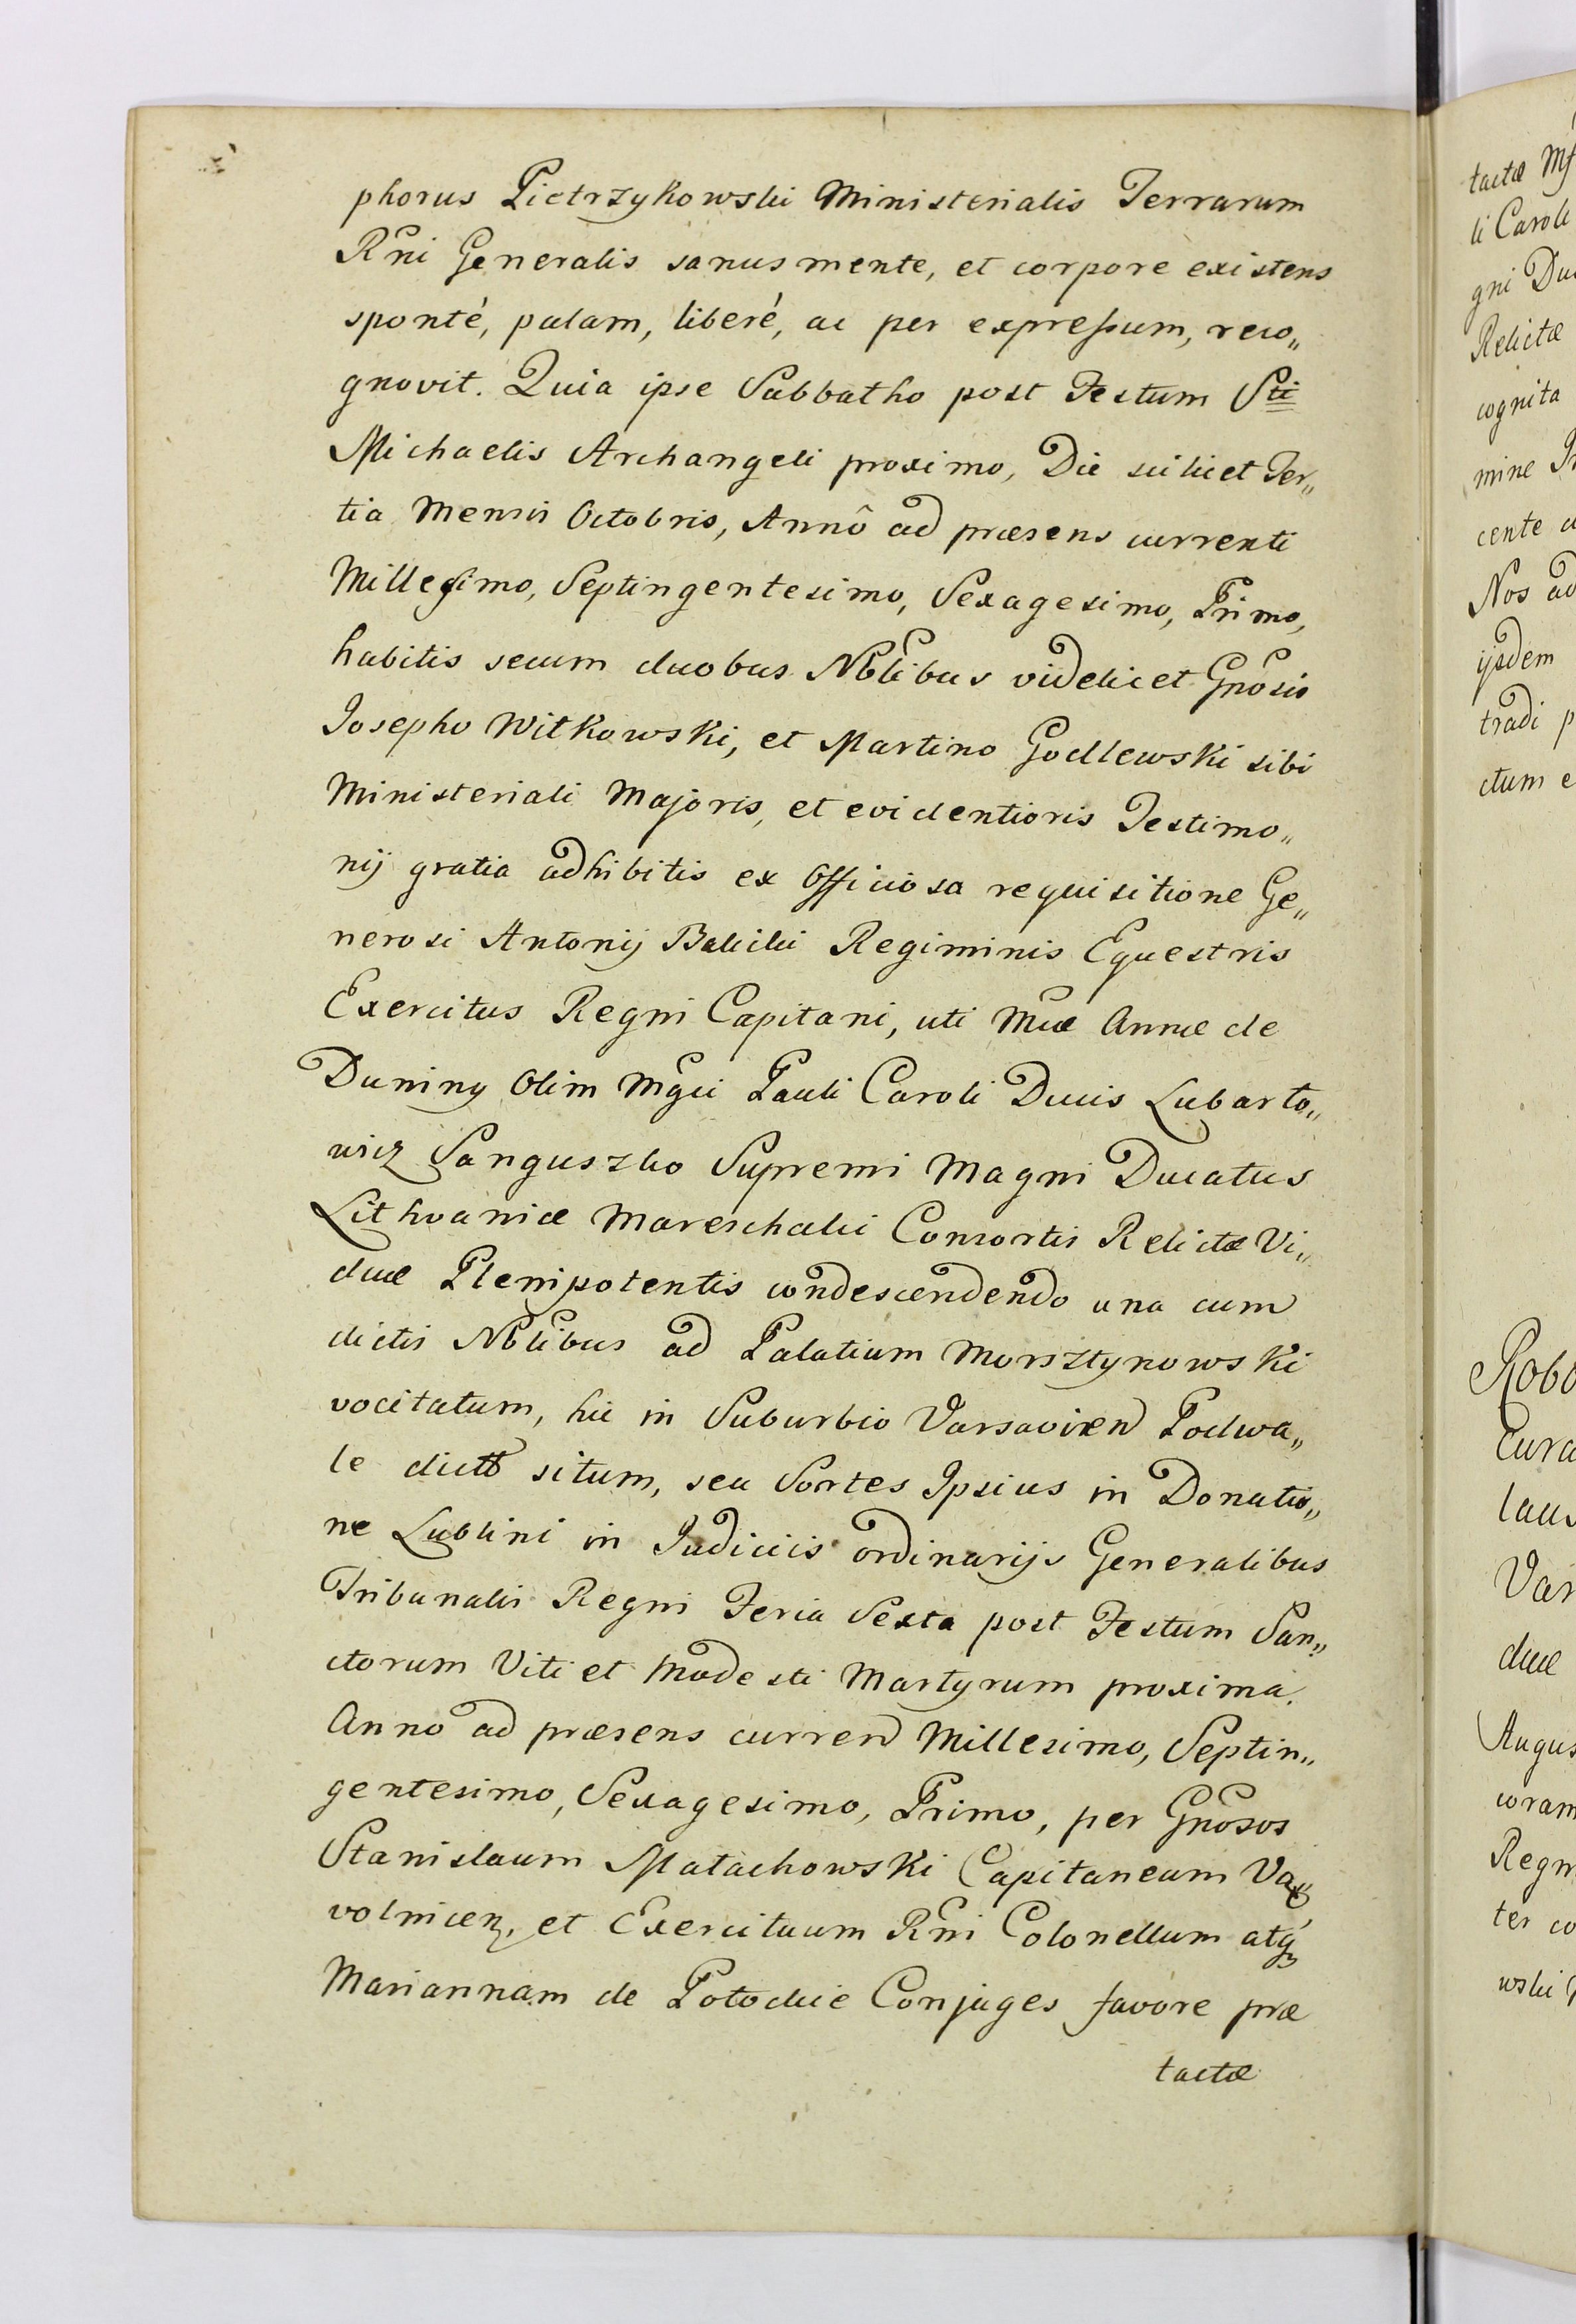 phorus Pietrzykowski Ministerialis Terrarum
Rñi Generalis sanus mente, et corpore existens
sponté, palam, liberé, ac per expressum, reco„
gnovit. Quia ipse Sabbatho post Festum Sti
Michaelis Archangeli proximo, Die scilicet Ter„
tia Mensis Octobris, Annô ad præsens currenti
Millesimo, Septingentesimo, Sexagesimo, Primo,
habitis secum duobus Nblibus videlicet Gnosis
Josepho Witkowski, et Martino Godlewski sibi
Ministeriali Majoris, et evidentioris Testimo„
nij gratia adhibitis ex Officiosa requisitione Ge„
nerosi Antonij Balicki Regiminis Equestris
Exercitus Regni Capitani, uti Mcæ Annæ de
Duniny Olim Mgci Pauli Caroli Ducis Lubarto„
wicz Sanguszko Supremi Magni Ducatus
Lithvaniæ Mareschalci Consortis Relictæ Vi„
duæ Plenipotentis condescendendo una cum
dictis Nblibus ad Palatium Morsztynowski
vocitatum, hic in Suburbio Varsavien Podwa„
le dicto situm, seu Sortes Ipsius in Donatio„
ne Lublini in Judiciis ordinarijs Generalibus
Tribunalis Regni Feria Sexta post Festum San„
ctorum Viti et Modesti Martyrum proxima.
Anno ad præsens curren Millesimo, Septin„
gentesimo, Sexagesimo, Primo, per Gnosos
Stanislaum Małachowski Capitaneum Va„
volnicen, et Exercituum Rñi Colonellum atq
Mariannam de Potockie Conjuges favore præ
tactæ
tactæ
li Caroli
gni
Relictæ
cognita
mine
cente
Nos ad
ijsdem
tradi
ctum